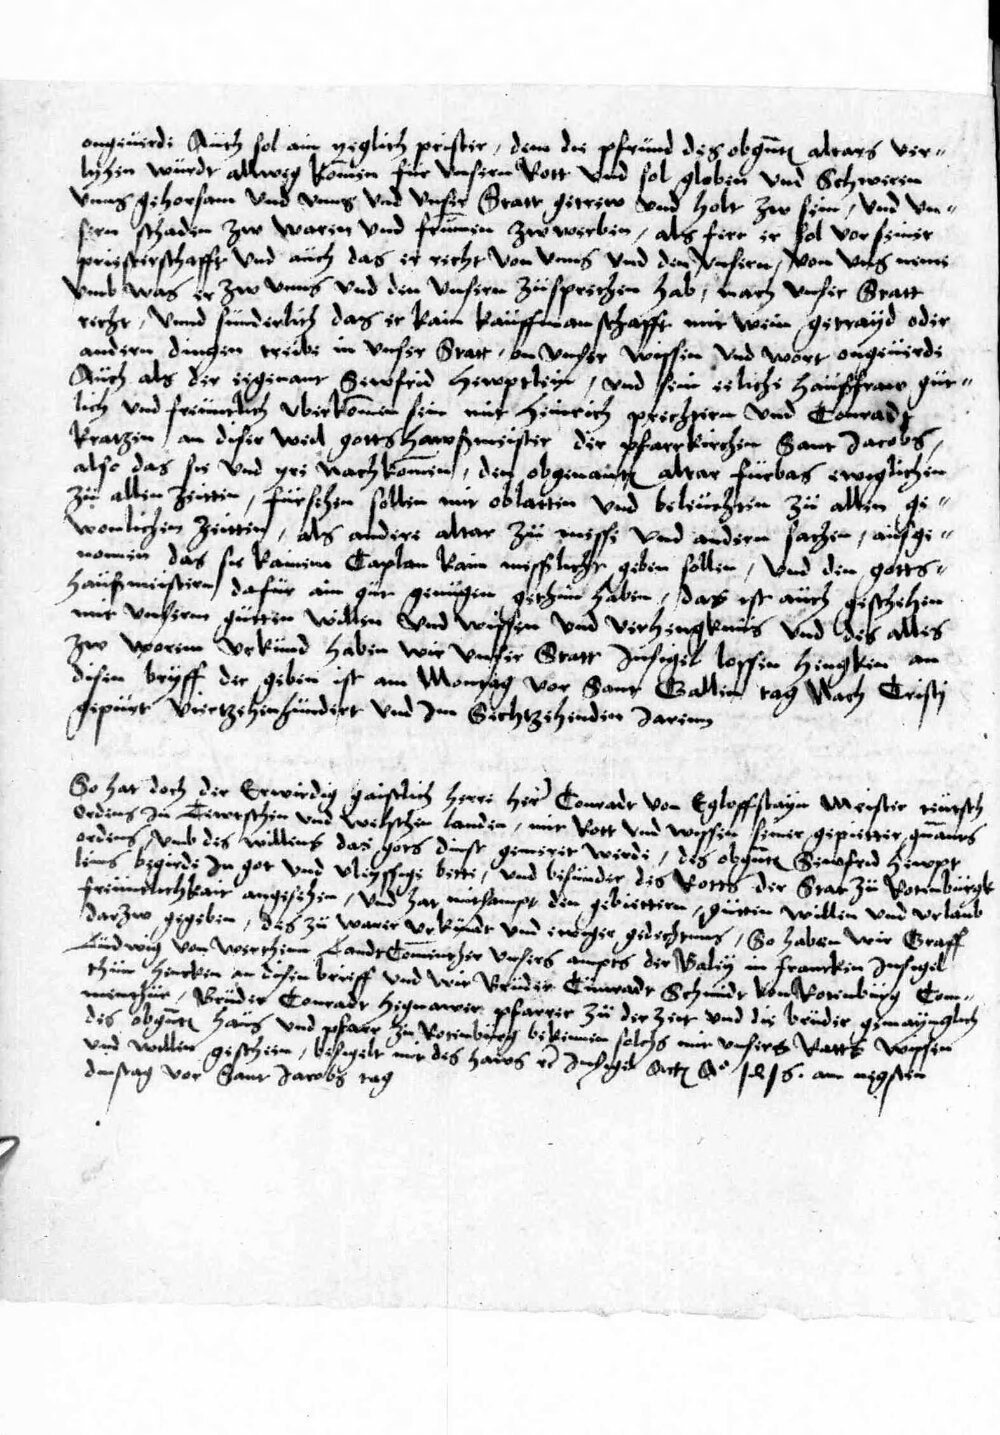 ongeuerde Auch sol ain yeglich prister, dem die pfrund des obgnten altars ver-
lyhen wurdt allweg komen fur vnsern Rott vnd sol globen vnd Schweren
vnns gehorsam vnd vnns vnd vnser Statt getrew vnd holt zw sein, vnd vn-
sern schaden zw waren vnd frumen zw werben, als ferr er sol vor seiner
priesterschafft vnd auch das er recht von vnns vnd den vnsern, von vns neme
vmb was er zw vnns vnd den vnsern zusprechen hab, nach vnser Statt
recht, vnnd sunderlich das er kain kauffmanschafft mit wein, getrayd oder
andern dingen treibe in vnser Statt, on vnser wissen vnd wort ongeuerde
Auch als der eegenant Sewfrid Hewptlein, vnd sein eeliche hausfraw gut-
lich vnd freuntlich vberkomen sein mit Heinrich prechtern vnd Conradt
kratzen an diser weil gottshawsmeister der pfarrkirchen Sant Jacobs,
also das sie vnd yre nachkomen, den obgenanten altar furbas eweglichen
zu allen zeitten, fursehen sollen mit oblatten vnd beleuchten zu allen ge-
wonlichen zeitten, als andere altar zu messe vnd andern sachen, ausge-
nomen das sie kainem Caplan kain messlicht geben sollen, vnd den gotts-
hausmeistern dafur ain gut genugen gethun haben, das ist auch geschehen
mit vnserm gutten willen vnd wissen vnd verhengknus vnd des alles
zw worem vrkund haben wir vnser Statt Insigel lossen hengken an
disen bryff der geben ist am Montag vor Sant Gallen tag Nach Cristj
gepurt viertzehenhundert vnd Im Sechtzehenden Jarenn
So hat doch der Erwirdig gaistlich herre her Conradt von Egloffstayn Meister teutsch
ordens In Tewtschen vnd welschen landen, mit Rott vnd wissen seiner gepietter gnants
ordens, vmb des willens das gots dinst gemeret werde, des obgnten Sewfrid Hewpt
leins begirde In got vnd vleyssige bette, vnd besunder des Rotts der Stat zu Rotenburgk
freuntlichkait angesehen, vnd hat mitsampt den gebiettern, gutten willen vnd vrlaub
darzw gegeben, des zu warer vrkundt vnd ewiger gedechtnus, So haben wir Graff
Ludwig von wertheim LandtComenther vnsers ampts der Baley in francken Insigel
thun hencken an disen brieff vnd wir Bruder Conradt Schmidt von Rotenburg Com-
menthur, Bruder Conradt Hegnawer pfarrer zu der zeit vnd die bruder gemaynglich
des obgnten haus vnd pfarr zu Rotenburg bekennen solchs mit vnsers Ratts wissen
vnd willen gescheen, besigelt mit des haws Insigel Actum Ao 1416. am negsten
dinstag vor Sant Jacobs tag